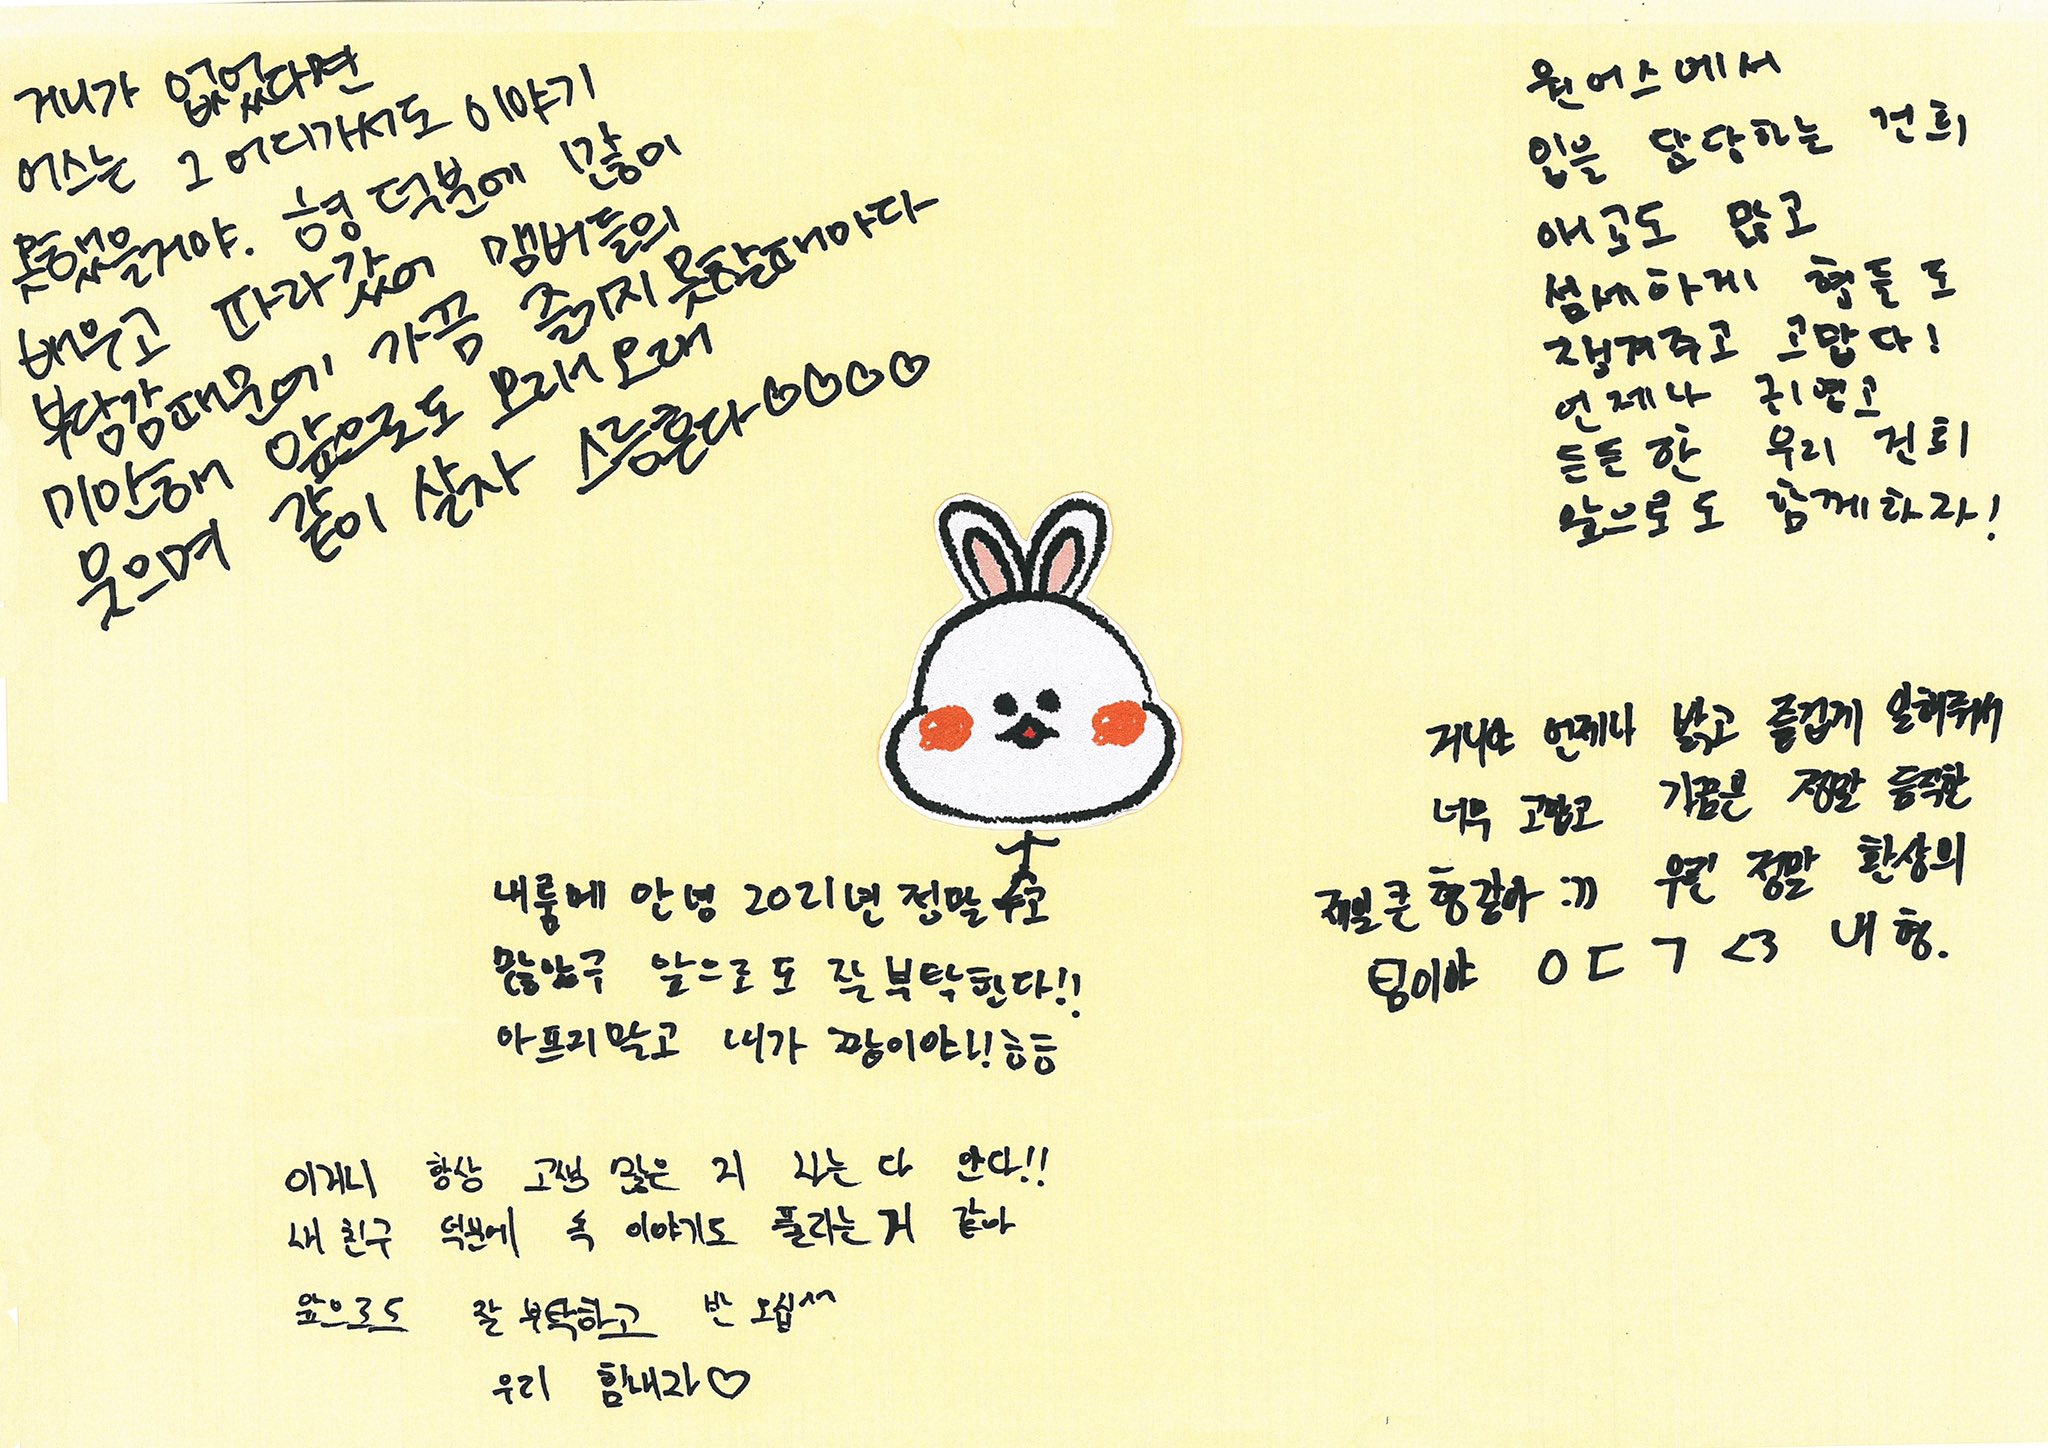 거니가 없었다면
어스는 그 어디가서도 이야기
못했을거야. 형 덕분에 많이
배우고 따라갔어 맴버들의
부담감때문에 가끔 즐기지못할때마다
미안해 앞으로도 오래오래
웃으며 같이 살자 스릉흔다♡♡♡♡
원어스에서
입을 담당하는 건희
애교도 많고
섬세하게 형들도
챙겨주고 고맙다!
언제나 귀엽고
든든한 우리 건희
앞으로도 함께하자!
거니야 언제나 밝고 즐겁게 일해줘서
너무 고맙고 가끔은 정말 듬직한
제일 큰 형같아 :)) 우린 정말 환상의
팀이야 ㅇㄷㄱ <3 내 형.
내룸메 안녕 2021년 정말 수고
많았구 앞으로도 잘 부탁한다!!
아프지말고 내가 짱이야!! 흐흐
이거니 항상 고생 많은 거 나는 다 안다!!
새 친구 덕분에 속 이야기도 풀리는 거 같아
앞으로도 잘 부탁하고 반 오십^^
우리 힘내자♡